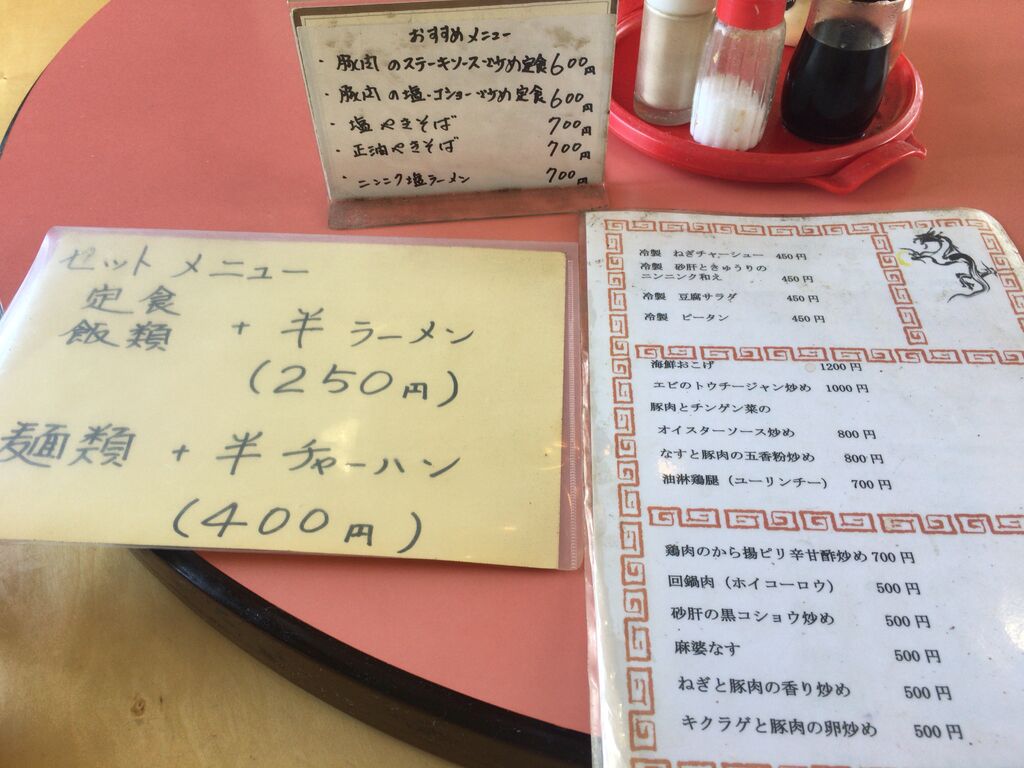 おすすめメニュー
・豚肉のステーキソース炒め定食600円
・豚肉の塩・コショー炒め定食600円
・塩やきそば 700円
・正油やきそば 700円
・ニンニク塩ラーメン 700円
セットメニュー
定食
飯類 + 半ラーメン
(250円)
麺類 + 半チャーハン
(400円)
冷製 ねぎチャーシュー 450円
冷製 砂肝ときゅうりの
ニンニク和え 450円
冷製 豆腐サラダ 450円
冷製 ピータン 450円
海鮮おこげ 1200円
エビのトウチージャン炒め 1000円
豚肉とチンゲン菜の
オイスターソース炒め 800円
なすと豚肉の五香粉炒め 800円
油淋鶏腿(ユーリンチー) 700円
鶏肉のから揚ピリ辛甘酢炒め700円
回鍋肉(ホイコーロウ) 500円
砂肝の黒コショウ炒め 500円
麻婆なす 500円
ねぎと豚肉の香り炒め 500円
キクラゲと豚肉の卵炒め 500円